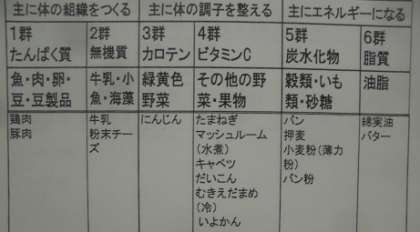 主に体の組織をつくる
主に体の調子を整える
主にエネルギーになる
1群
たんぱく質
2群
無機質
3群
カロテン
4群
ビタミンC
5群
炭水化物
6群
脂質
魚・肉・卵・
豆・豆製品
牛乳・小
魚・海藻
緑黄色
野菜
その他の野
菜・果物
穀類・いも
類・砂糖
油脂
鶏肉
豚肉
牛乳
粉末チー
ズ
にんじん
たまねぎ
マッシュルーム
(水煮)
キャベツ
だいこん
むきえだまめ
(冷)
いよかん
パン
押麦
小麦粉(薄力
粉)
パン粉
綿実油
バター